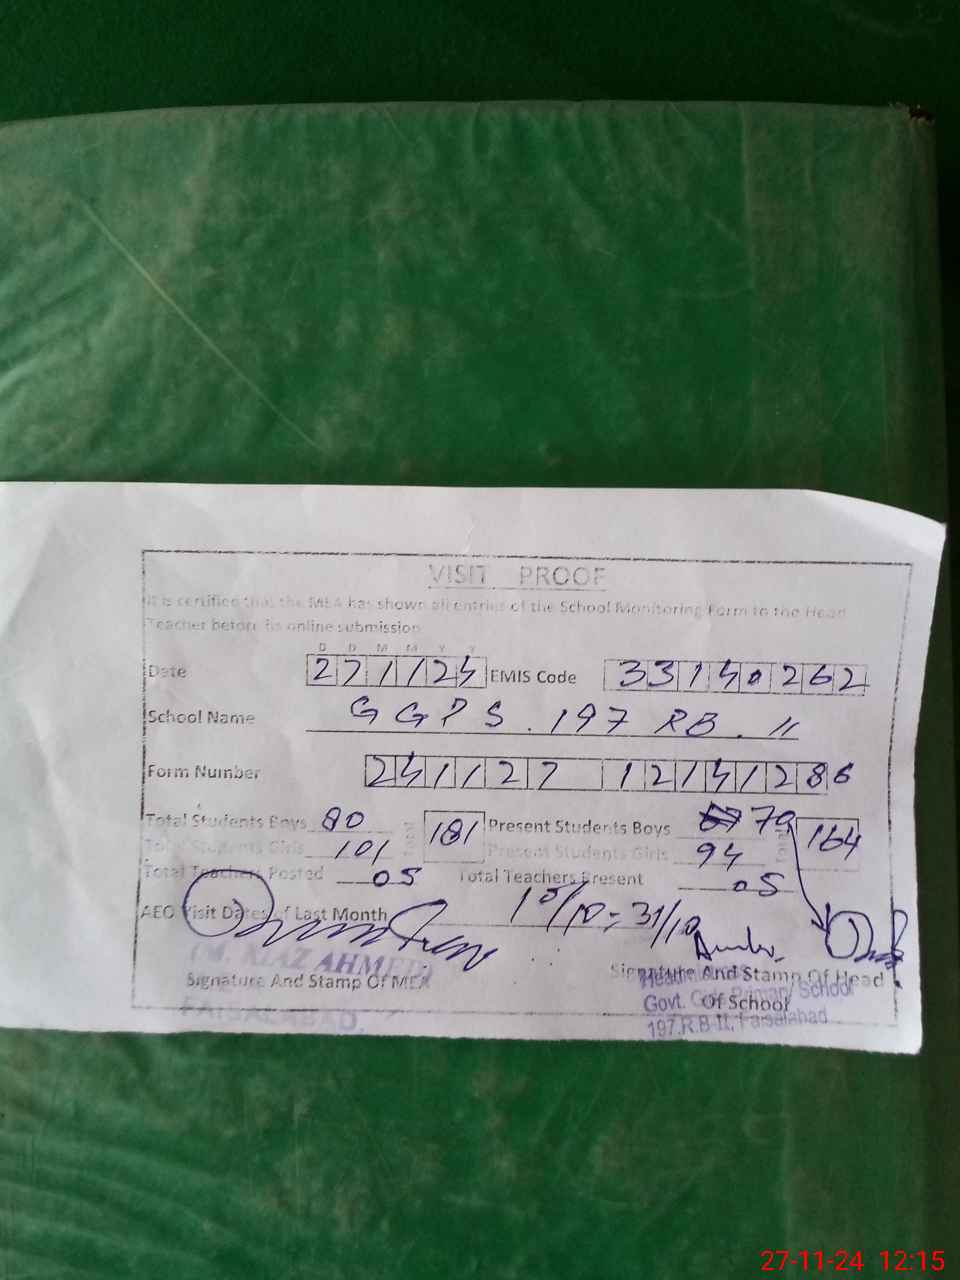 VISIT PROOF
It is certified that the MEA has shown all entries of the School Monitoring Form to the Head
Teacher before its online submission
D D M M Y Y
Date 271124 EMIS Code 33140262
School Name GGPS . 197 RB . II
Form Number 241127 12141286
Total Students Boys 80 Total 181 Present Students Boys 70 Total 164
Total Students Girls 101 Present Students Girls 94
Total Teachers Posted 05 Total Teachers Present 05
AEO Visit Dates of Last Month 15/10, 31/10
(M. RIAZ AHMED)
Signature And Stamp Of MEA
FAISALABAD.
Signature And Stamp Of Head
Of School
Headmistress
Govt. Girls Primary School
197.R.B-II, Faisalabad
27-11-24 12:15